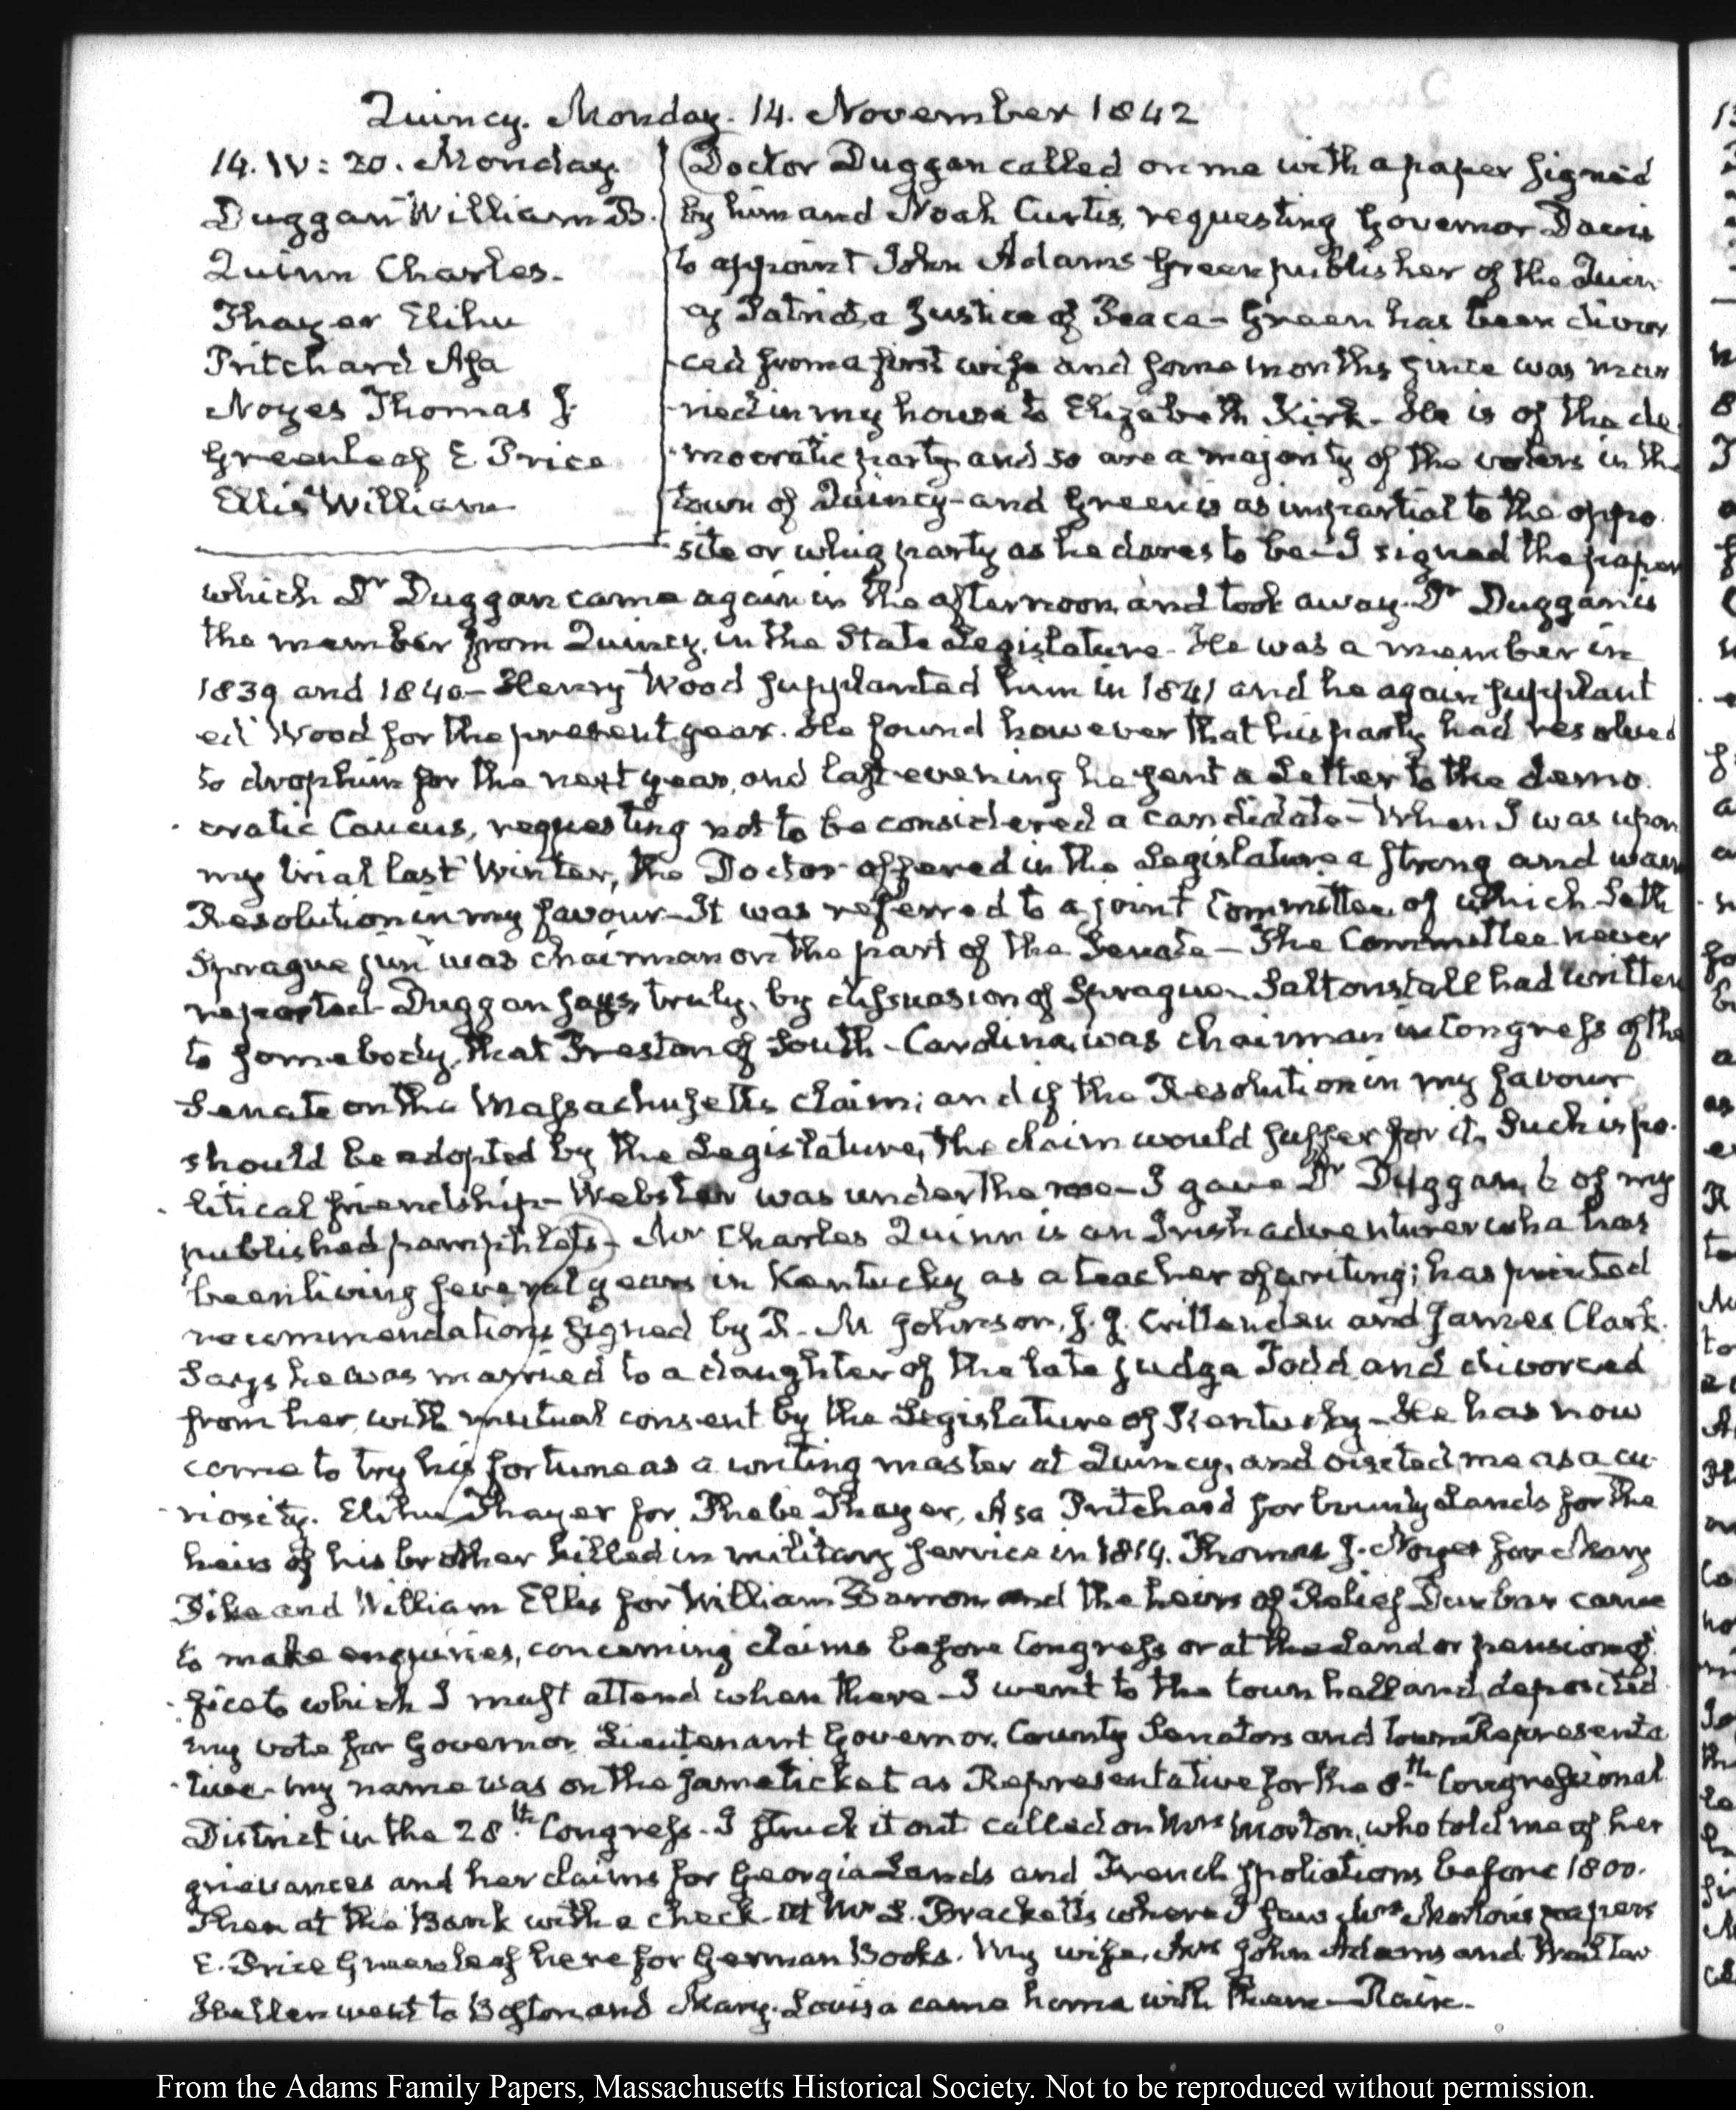 Quincy. Monday. 14. November 1842
14. IV: 20. Monday.
Duggan William B.
Quinn Charles.
Thayer Elihu
Pritchard Asa
Noyes Thomas J.
Greenleaf E. Price
Ellis William
Doctor Duggan called on me with a paper signed
by him and Noah Curtis, requesting Governor Davis
to appoint John Adams Green publisher of the Quin-
cy Patriot, a Justice of Peace - Green has been divor
ced from a first wife and some months since was mar
ried in my house to Elizabeth Kirk - He is of the de
mocratic party and so are a majority of the voters in the
town of Quincy - and Green is as impartial to the oppo
site or whig party as he dares to be - I signed the paper
which Dr Duggan came again in the afternoon, and took away. Dr Duggan is
the member from Quincy, in the State Legislature - He was a member in
1839 and 1840 - Henry Wood supplanted him in 1841 and he again supplant
ed Wood for the present year. He found however that his party had resolved
to drop him for the next year, and last evening he sent a Letter to the demo
cratic Caucus, requesting not to be considered a candidate - When I was upon
my trial last Winter, the Doctor offered in the Legislature a strong and warm
Resolution in my favour - It was referred to a joint Committee, of which Seth
Sprague junr was chairman on the part of the Senate - The Committee never
reported - Duggan says, truly, by dissuasion of Sprague - Saltonstall had written
to somebody, that Preston of South-Carolina, was chairman in Congress of the
Senate on the Massachusetts claim; and if the Resolution in my favour
should be adopted by the Legislature, the claim would suffer for it. Such is po-
litical friendship - Webster was under the rose - I gave Dr Duggan, 6 of my
published pamphlets - Mr Charles Quinn is an Irish adventurer who has
been living several years in Kentucky as a teacher of writing; has printed
recommendations signed by R. M Johnson, J. J. Crittenden and James Clark.
Says he was married to a daughter of the late judge Todd, and divorced
from her, with mutual consent by the Legislature of Kentucky - He has now
come to try his fortune as a writing master at Quincy, and visited me as a cu-
riosity. Elihu Thayer for Phebe Thayer, Asa Pritchard for bounty Lands for the
heirs of his brother killed in military service in 1814. Thomas J. Noyes for Mary
Pike and William Ellis for William Barron and the heirs of Relief Dunbar came
to make enquiries, concerning claims before Congress or at the Land or pension of
fice to which I must attend when there - I went to the town hall and deposited
my vote for Governor, Lieutenant Governor, County Senators and town Representa
tive - my name was on the same ticket as Representative for the 8th Congressional
District in the 28th Congress - I struck it out called on Mrs Morton, who told me of her
grievances and her claims for Georgia Lands and French spoliations before 1800.
Then at the Bank with a check - at Mr L. Brackett's where I saw Mrs Morton's papers
E. Price Greenleaf here for German Books. My wife, Mrs John Adams and Walter
Hellen went to Boston, and Mary-Louisa came home with them - Rain.
From the Adams Family Papers, Massachusetts Historical Society. Not to be reproduced without permission.